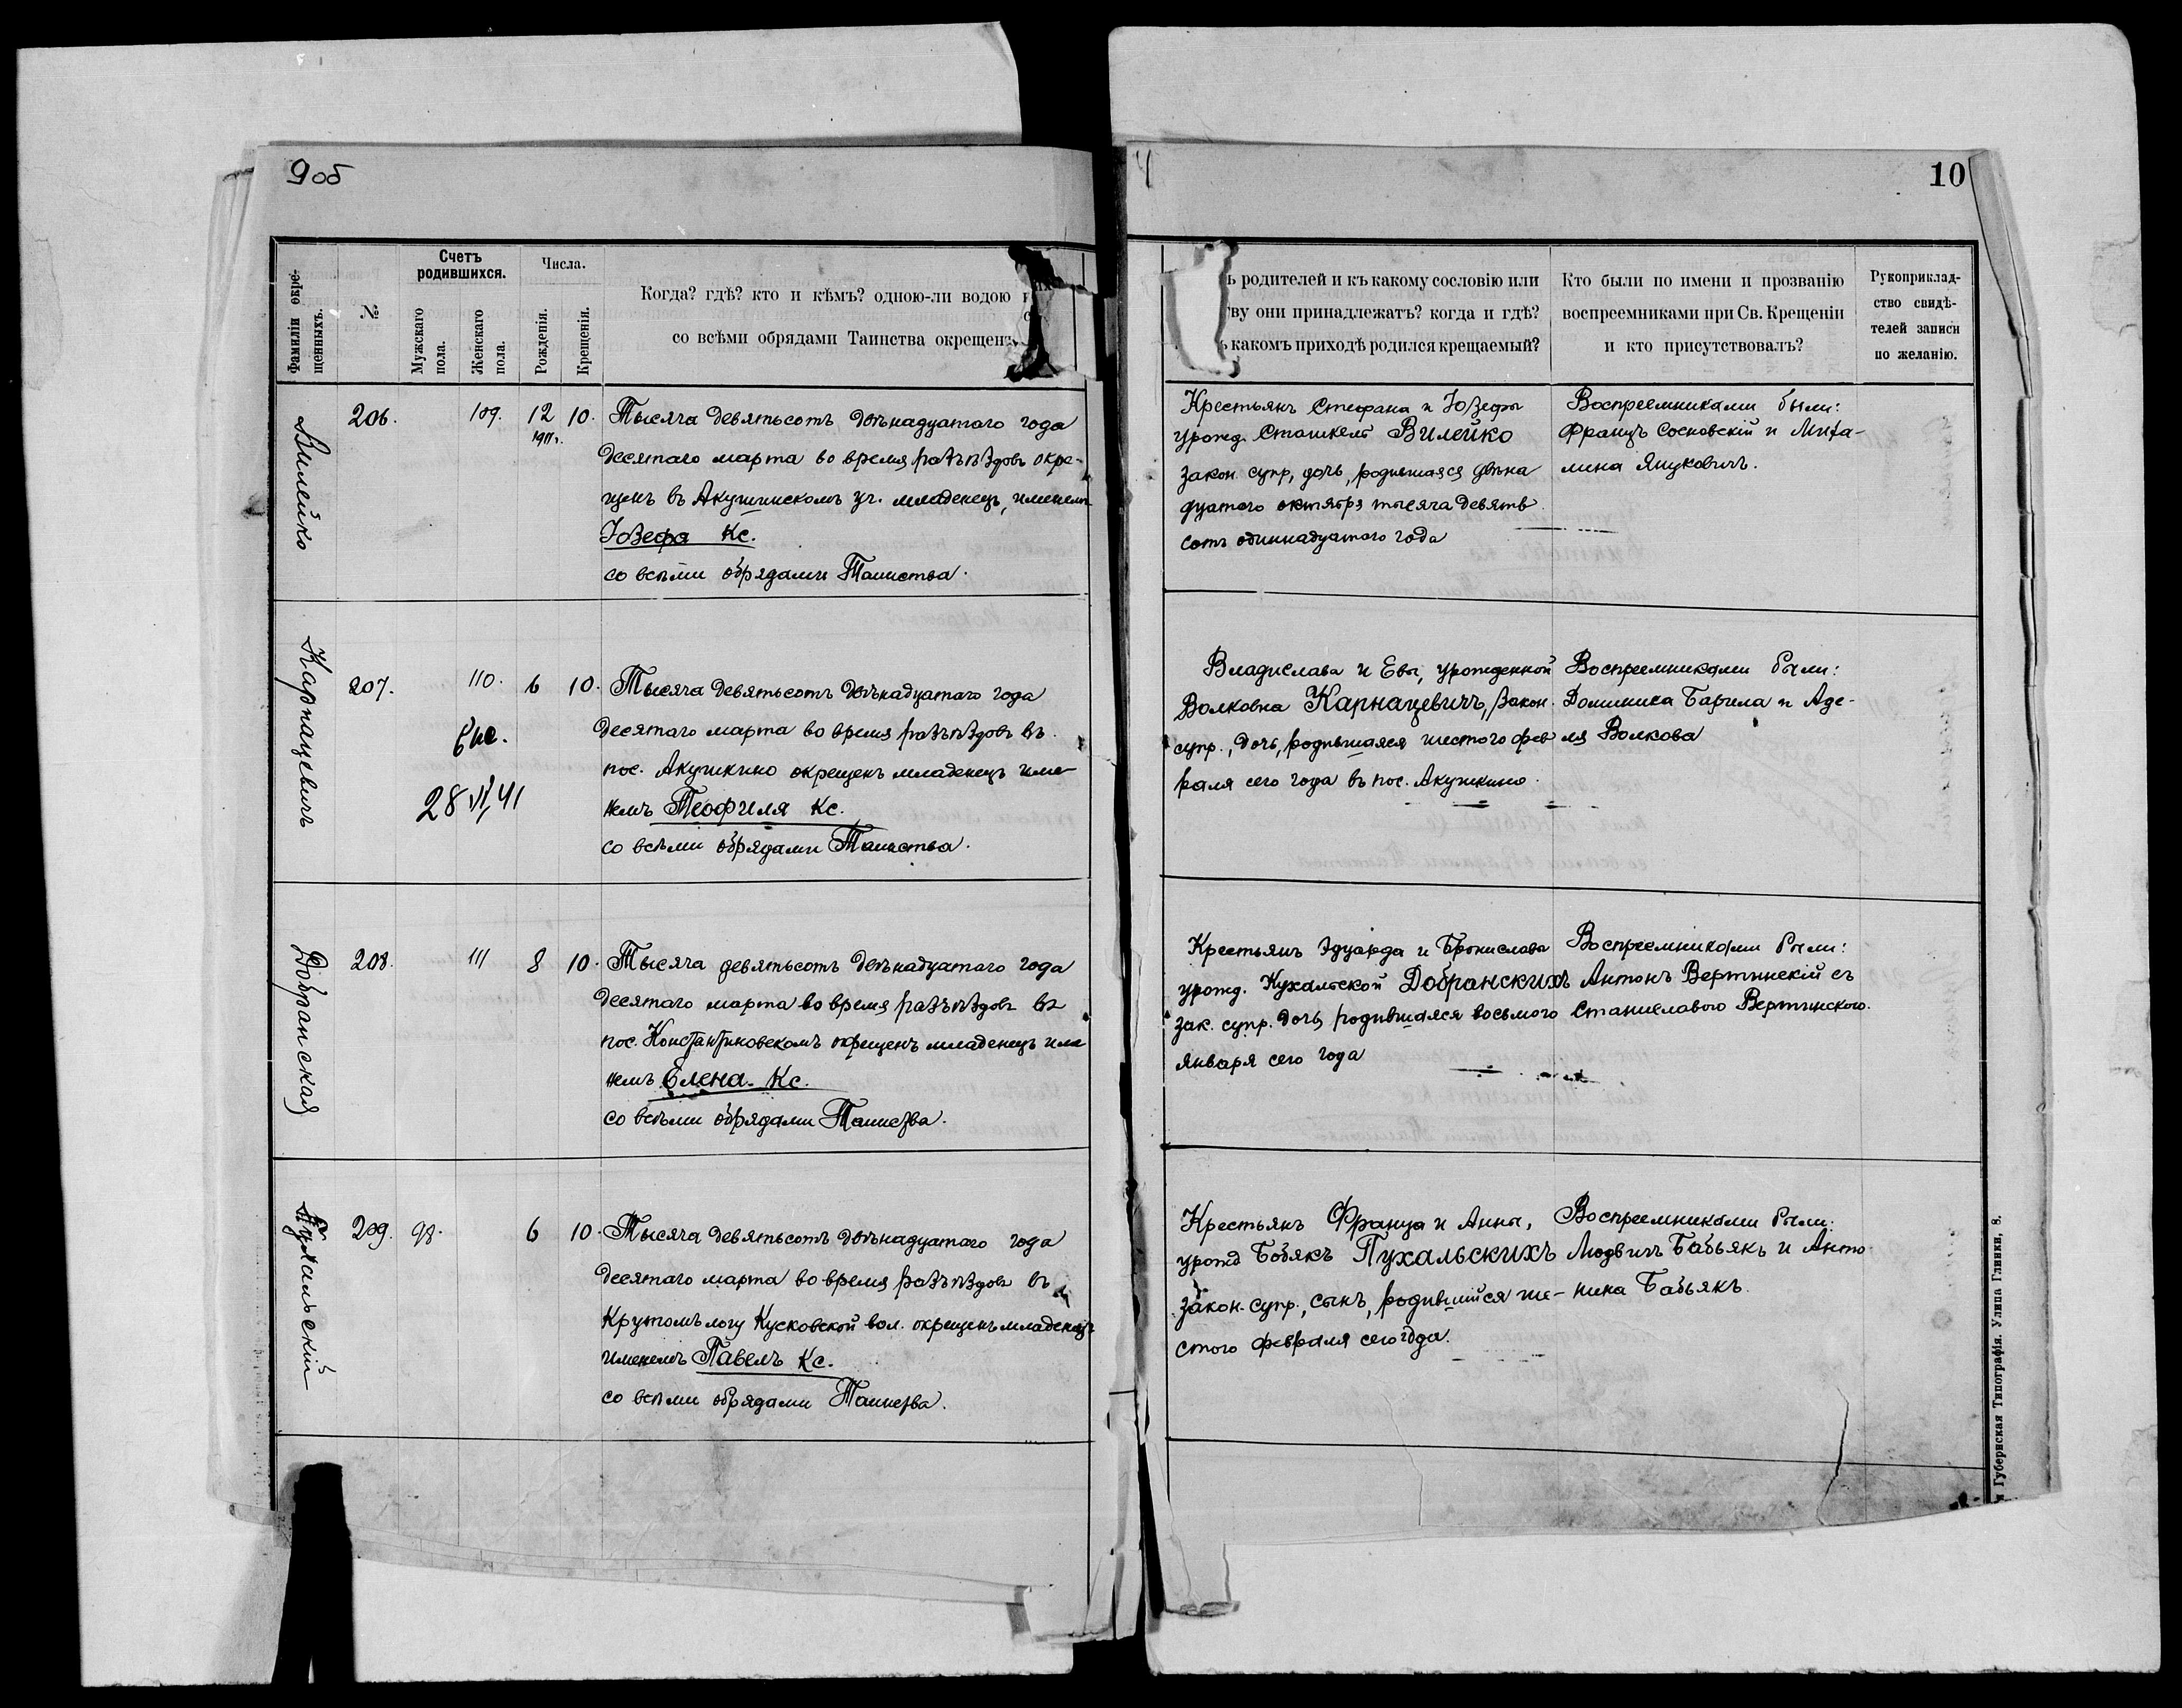 9 об
10
Фамиліи окре-
щенныхъ.
№
Счетъ
родившихся.
Мужскаго
пола.
Женскаго
пола.
Числа.
Рожденія.
Крещенія.
Когда? гдѣ? кто и кѣмъ? одною-ли водою
со всѣми обрядами Таинства окрещенъ
ъ родителей и къ какому сословію или
ву они принадлежатъ? когда и гдѣ?
ъ какомъ приходѣ родился крещаемый?
Кто были по имени и прозванію
воспреемниками при Св. Крещеніи
и кто присутствовалъ?
Рукоприклад-
ство свидѣ-
телей записи
по желанію.
Вилейко
206. 109. 12 10.
1911 г.
Тысяча девятьсотъ двѣнадцатаго года
десятаго марта во время разъѣздовъ окре-
щенъ въ Акушинскомъ уч. младенецъ, именемъ
Юзефа Кс.
со всѣми обрядами Таинства.
Крестьянъ Стефана и Юзефы
урожд. Сташкель Вилейко
закон. супр, дочь, родившаяся двѣна
дцатаго октября тысяча девять
сотъ одиннадцатаго года
Воспреемниками были:
Францъ Сосновскій и Миха-
лина Януковичъ.
Карнацевичъ
207. 110. 6 10.
28 VI 41
Тысяча девятьсотъ двѣнадцатаго года
десятаго марта во время разъѣздовъ въ
пос. Акушкино окрещенъ младенецъ име
немъ Теофиля Кс.
со всѣми обрядами Таинства.
Владислава и Евы, урожденной
Волковна Карнацевичъ, закон.
супр., дочь, родившаяся шестого фев
раля сего года въ пос. Акушкино.
Воспреемниками были:
Доминика Барила и Аде-
ля Волкова
Добранская
208. 111 8 10.
Тысяча девятьсотъ двѣнадцатаго года
десятаго марта во время разъѣздовъ въ
пос. Константиновскомъ окрещенъ младенецъ име
немъ Елена Кс.
со всѣми обрядами Таинства.
Крестьянъ Эдуарда и Бронислава
урожд. Кухальской Добранскихъ
зак. супр. дочь, родившаяся восьмого
января сего года
Воспреемниками были:
Антонъ Вертинскій съ
Станиславою Вертинского.
Пухальскій
209. 98. 6 10.
Тысяча девятьсотъ двѣнадцатаго года
десятаго марта во время разъѣздовъ въ
Крутомъ логу Кусковской вол. окрещенъ младенецъ
именемъ Павелъ Кс.
со всѣми обрядами Таинства.
Крестьянъ Франца и Анны,
урожд Бобякъ Пухальскихъ
закон. супр., сынъ, родившійся ше-
стого февраля сего года.
Воспреемниками были:
Людвигъ Бабьякъ и Анто
нина Бабьякъ.
Губернская Типографія. Улица Глинки, 8.